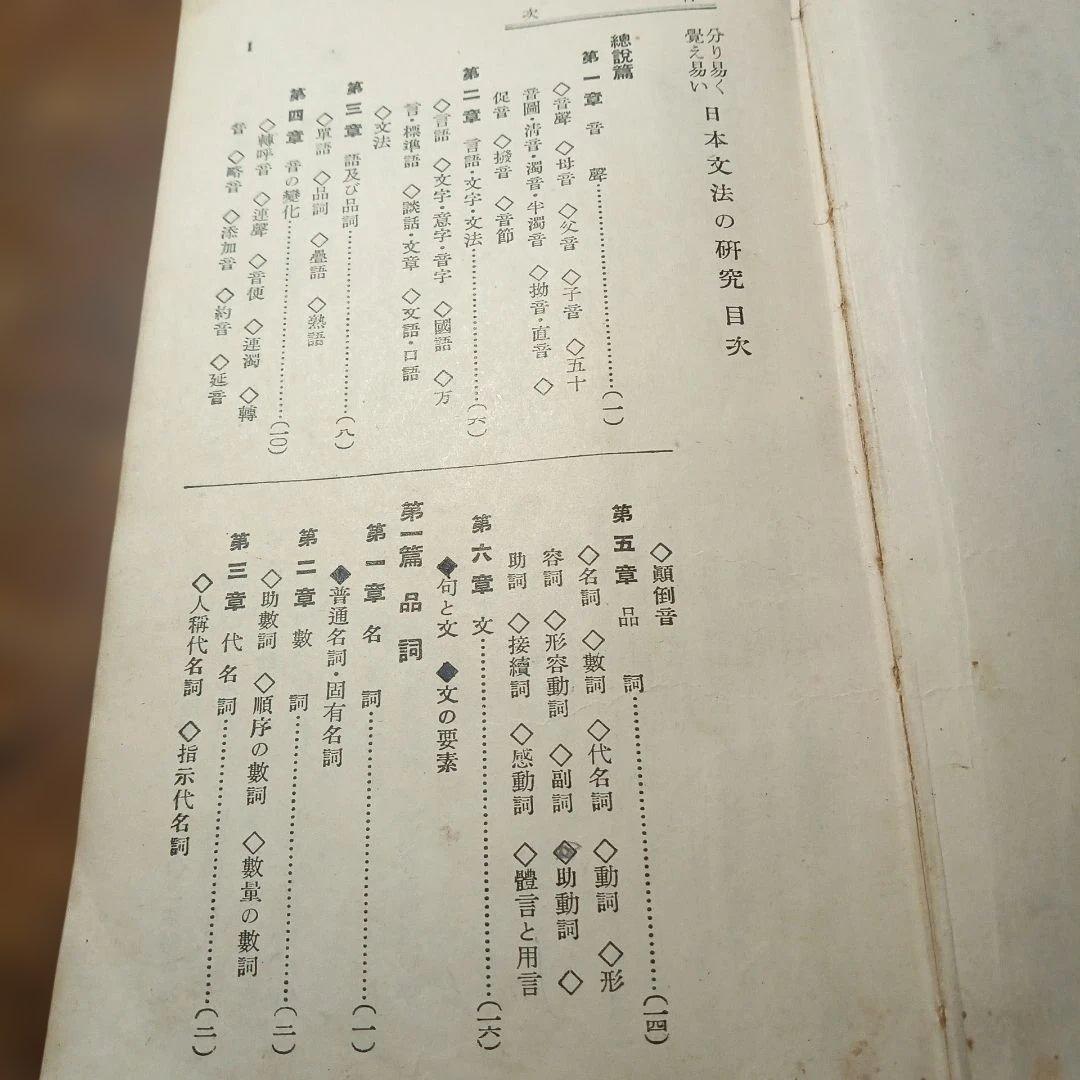 次
分り易く
覺え易い
日本文法の研究 目次
總說篇
第一章 音聲……(一)
◇音聲 ◇母音 ◇父音 ◇子音 ◇五十
音圖・淸音・濁音・半濁音 ◇拗音・直音 ◇
促音 ◇撥音 ◇音節
第二章 言語・文字・文法……(六)
◇言語 ◇文字・意字・音字 ◇國語 ◇方
言・標準語 ◇談話・文章 ◇文語・口語
◇文法
第三章 語及び品詞……(八)
◇單語 ◇品詞 ◇疊語 ◇熟語
第四章 音の變化……(一〇)
◇轉呼音 ◇連聲 ◇音便 ◇連濁 ◇轉
音 ◇略音 ◇添加音 ◇約音 ◇延音
◇顚倒音
第五章 品詞……(一四)
◇名詞 ◇數詞 ◇代名詞 ◇動詞 ◇形
容詞 ◇形容動詞 ◇副詞 ◇助動詞 ◇
助詞 ◇接續詞 ◇感動詞 ◇體言と用言
第六章 文……(一六)
◆句と文 ◆文の要素
第一篇 品詞
第一章 名詞……(一)
◆普通名詞・固有名詞
第二章 數詞……(二)
◇助數詞 ◇順序の數詞 ◇數量の數詞
第三章 代名詞……(二)
◇人稱代名詞 ◇指示代名詞
1